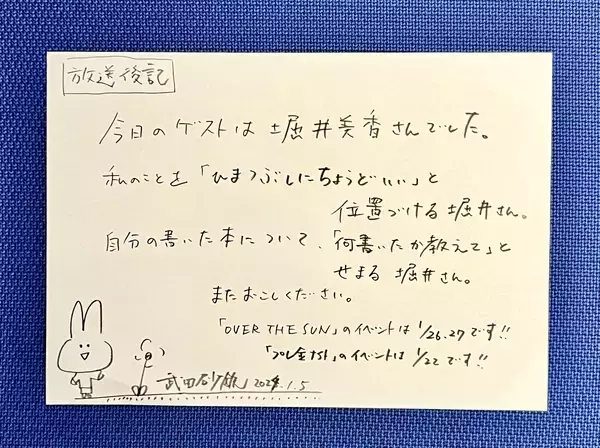 放送後記
今日のゲストは堀井美香さんでした。
私のことを「ひまつぶしにちょうどいい」と
位置づける堀井さん。
自分の書いた本について、「何書いたか教えて」と
せまる堀井さん。
またおこしください。
「OVER THE SUN」のイベントは1/26.27です!!
「プレ金ナイト」のイベントは1/22です!!
武田砂鉄 2024.1.5